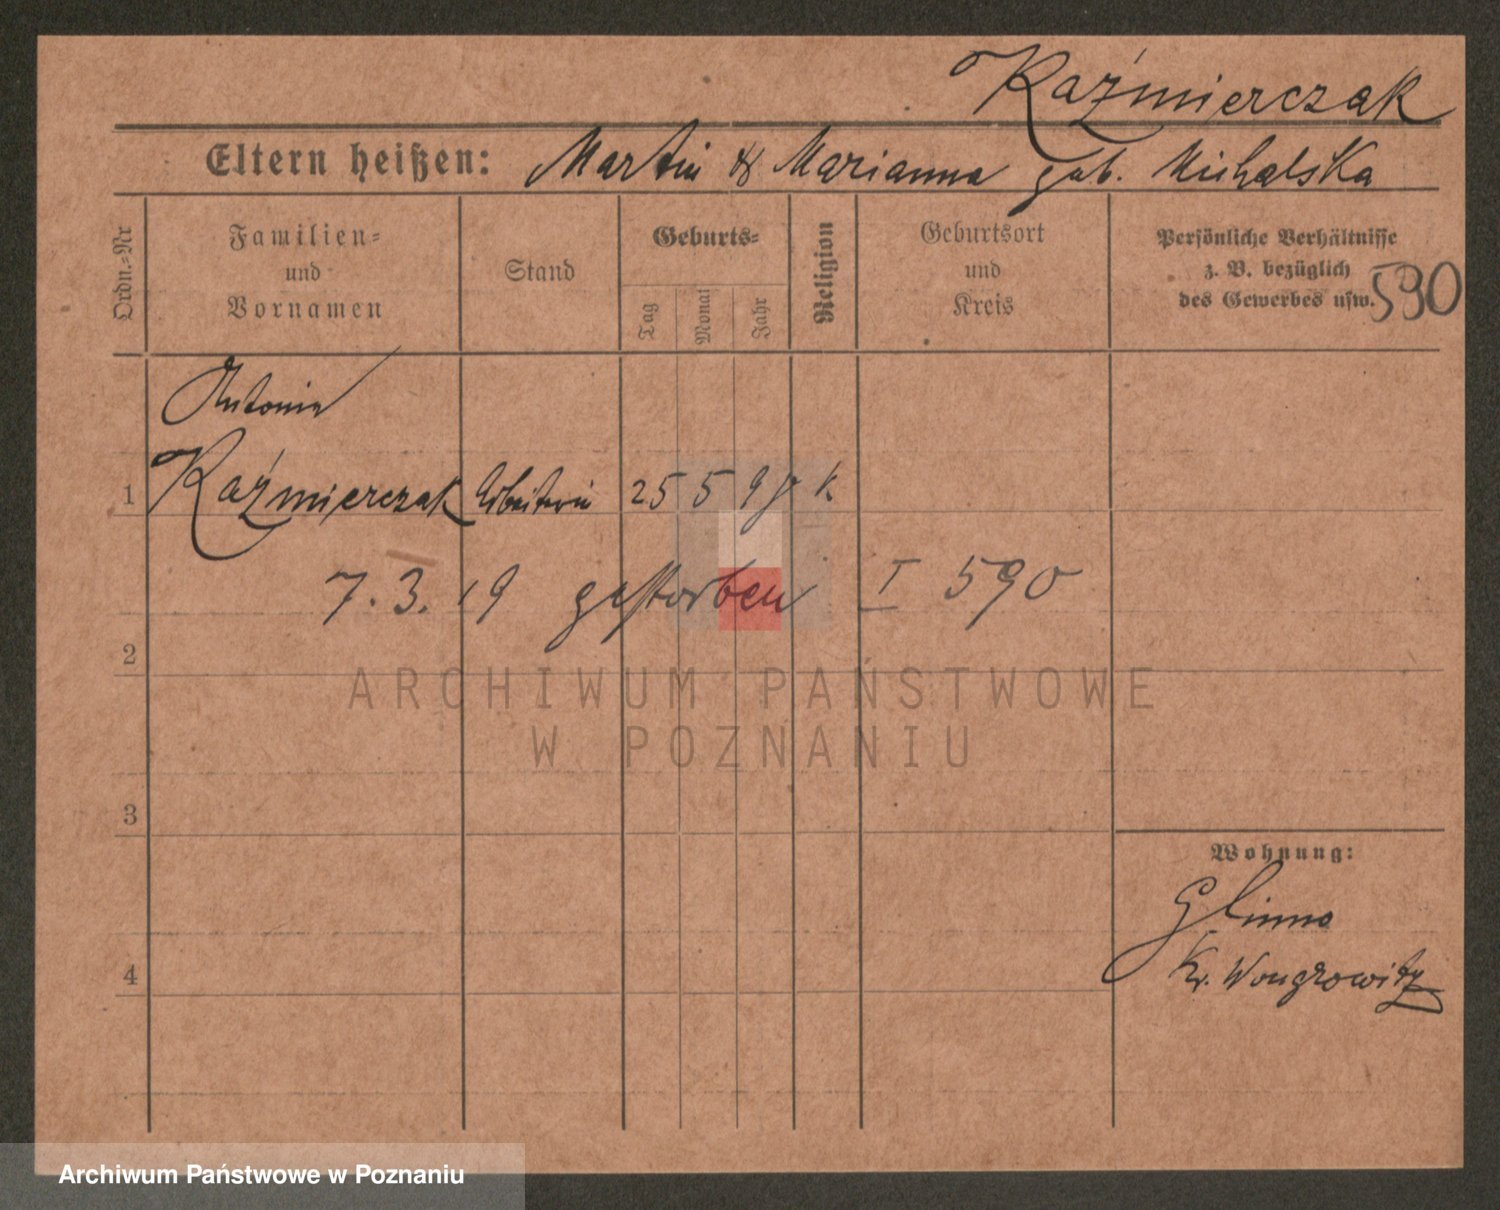 Kaźmierczak
Eltern heißen: Martin & Marianna geb. Michalska
Ordn.-Nr
Familien-
und
Vornamen
Stand
Geburts-
Tag
Monat
Jahr
Religion
Geburtsort
und
Kreis
Persönliche Verhältnisse
z. B. bezüglich
des Gewerbes usw.
590
Antonie
1 Kaźmierczak Arbeiterin 25 5 98 k
7.3.19 gestorben I 590
2
ARCHIWUM PAŃSTWOWE
W POZNANIU
3
Wohnung:
Glinno
Kr. Wongrowitz
4
Archiwum Państwowe w Poznaniu